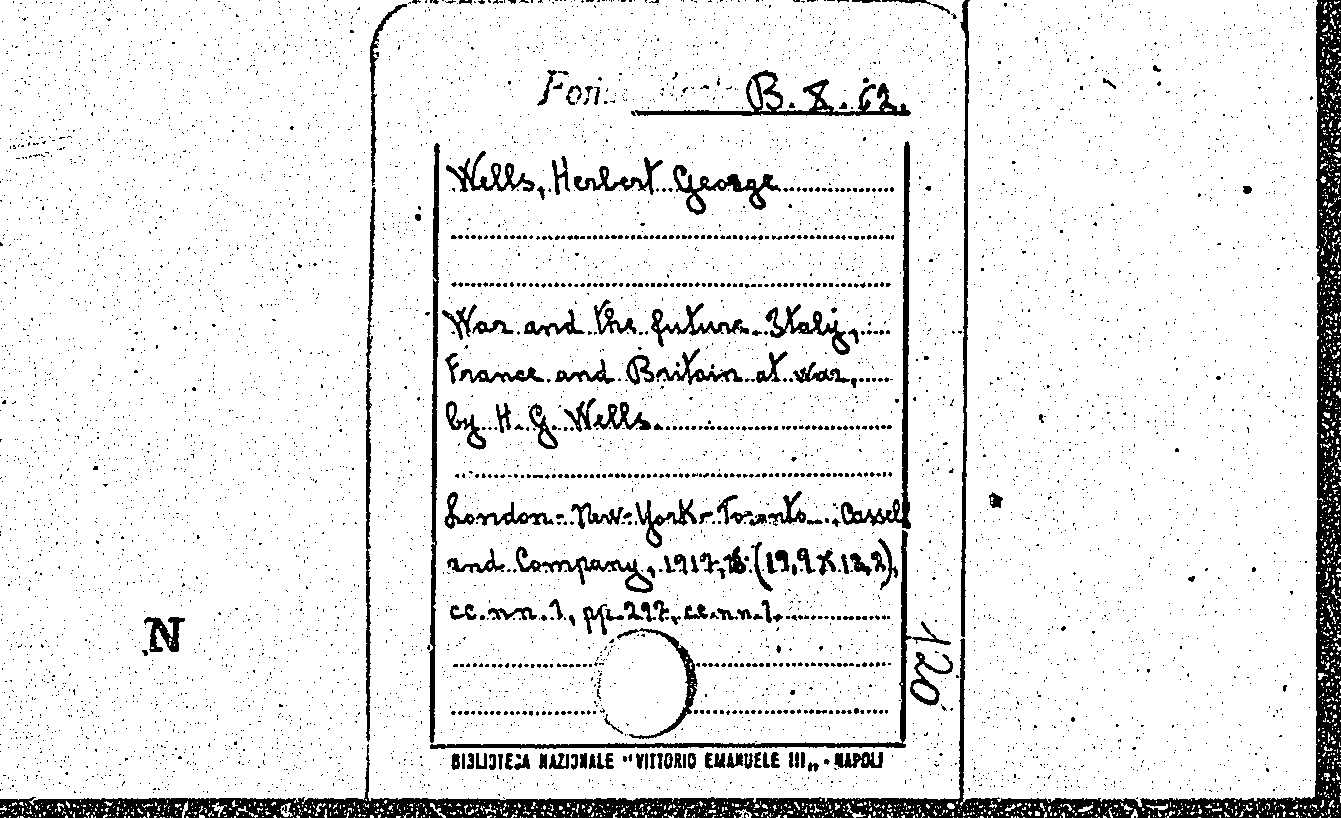 B. 8. 62.
Wells, Herbert George
War and the future. Italy,
France and Britain at war,
by H. G. Wells.
London - New-York - Toronto, Cassell
and Company, 1917, (19,9 X 13,2),
cc. nn. 1, pp. 297, cc. nn. 1.
120
N
BIBLIOTECA NAZIONALE "VITTORIO EMANUELE III„ - NAPOLI